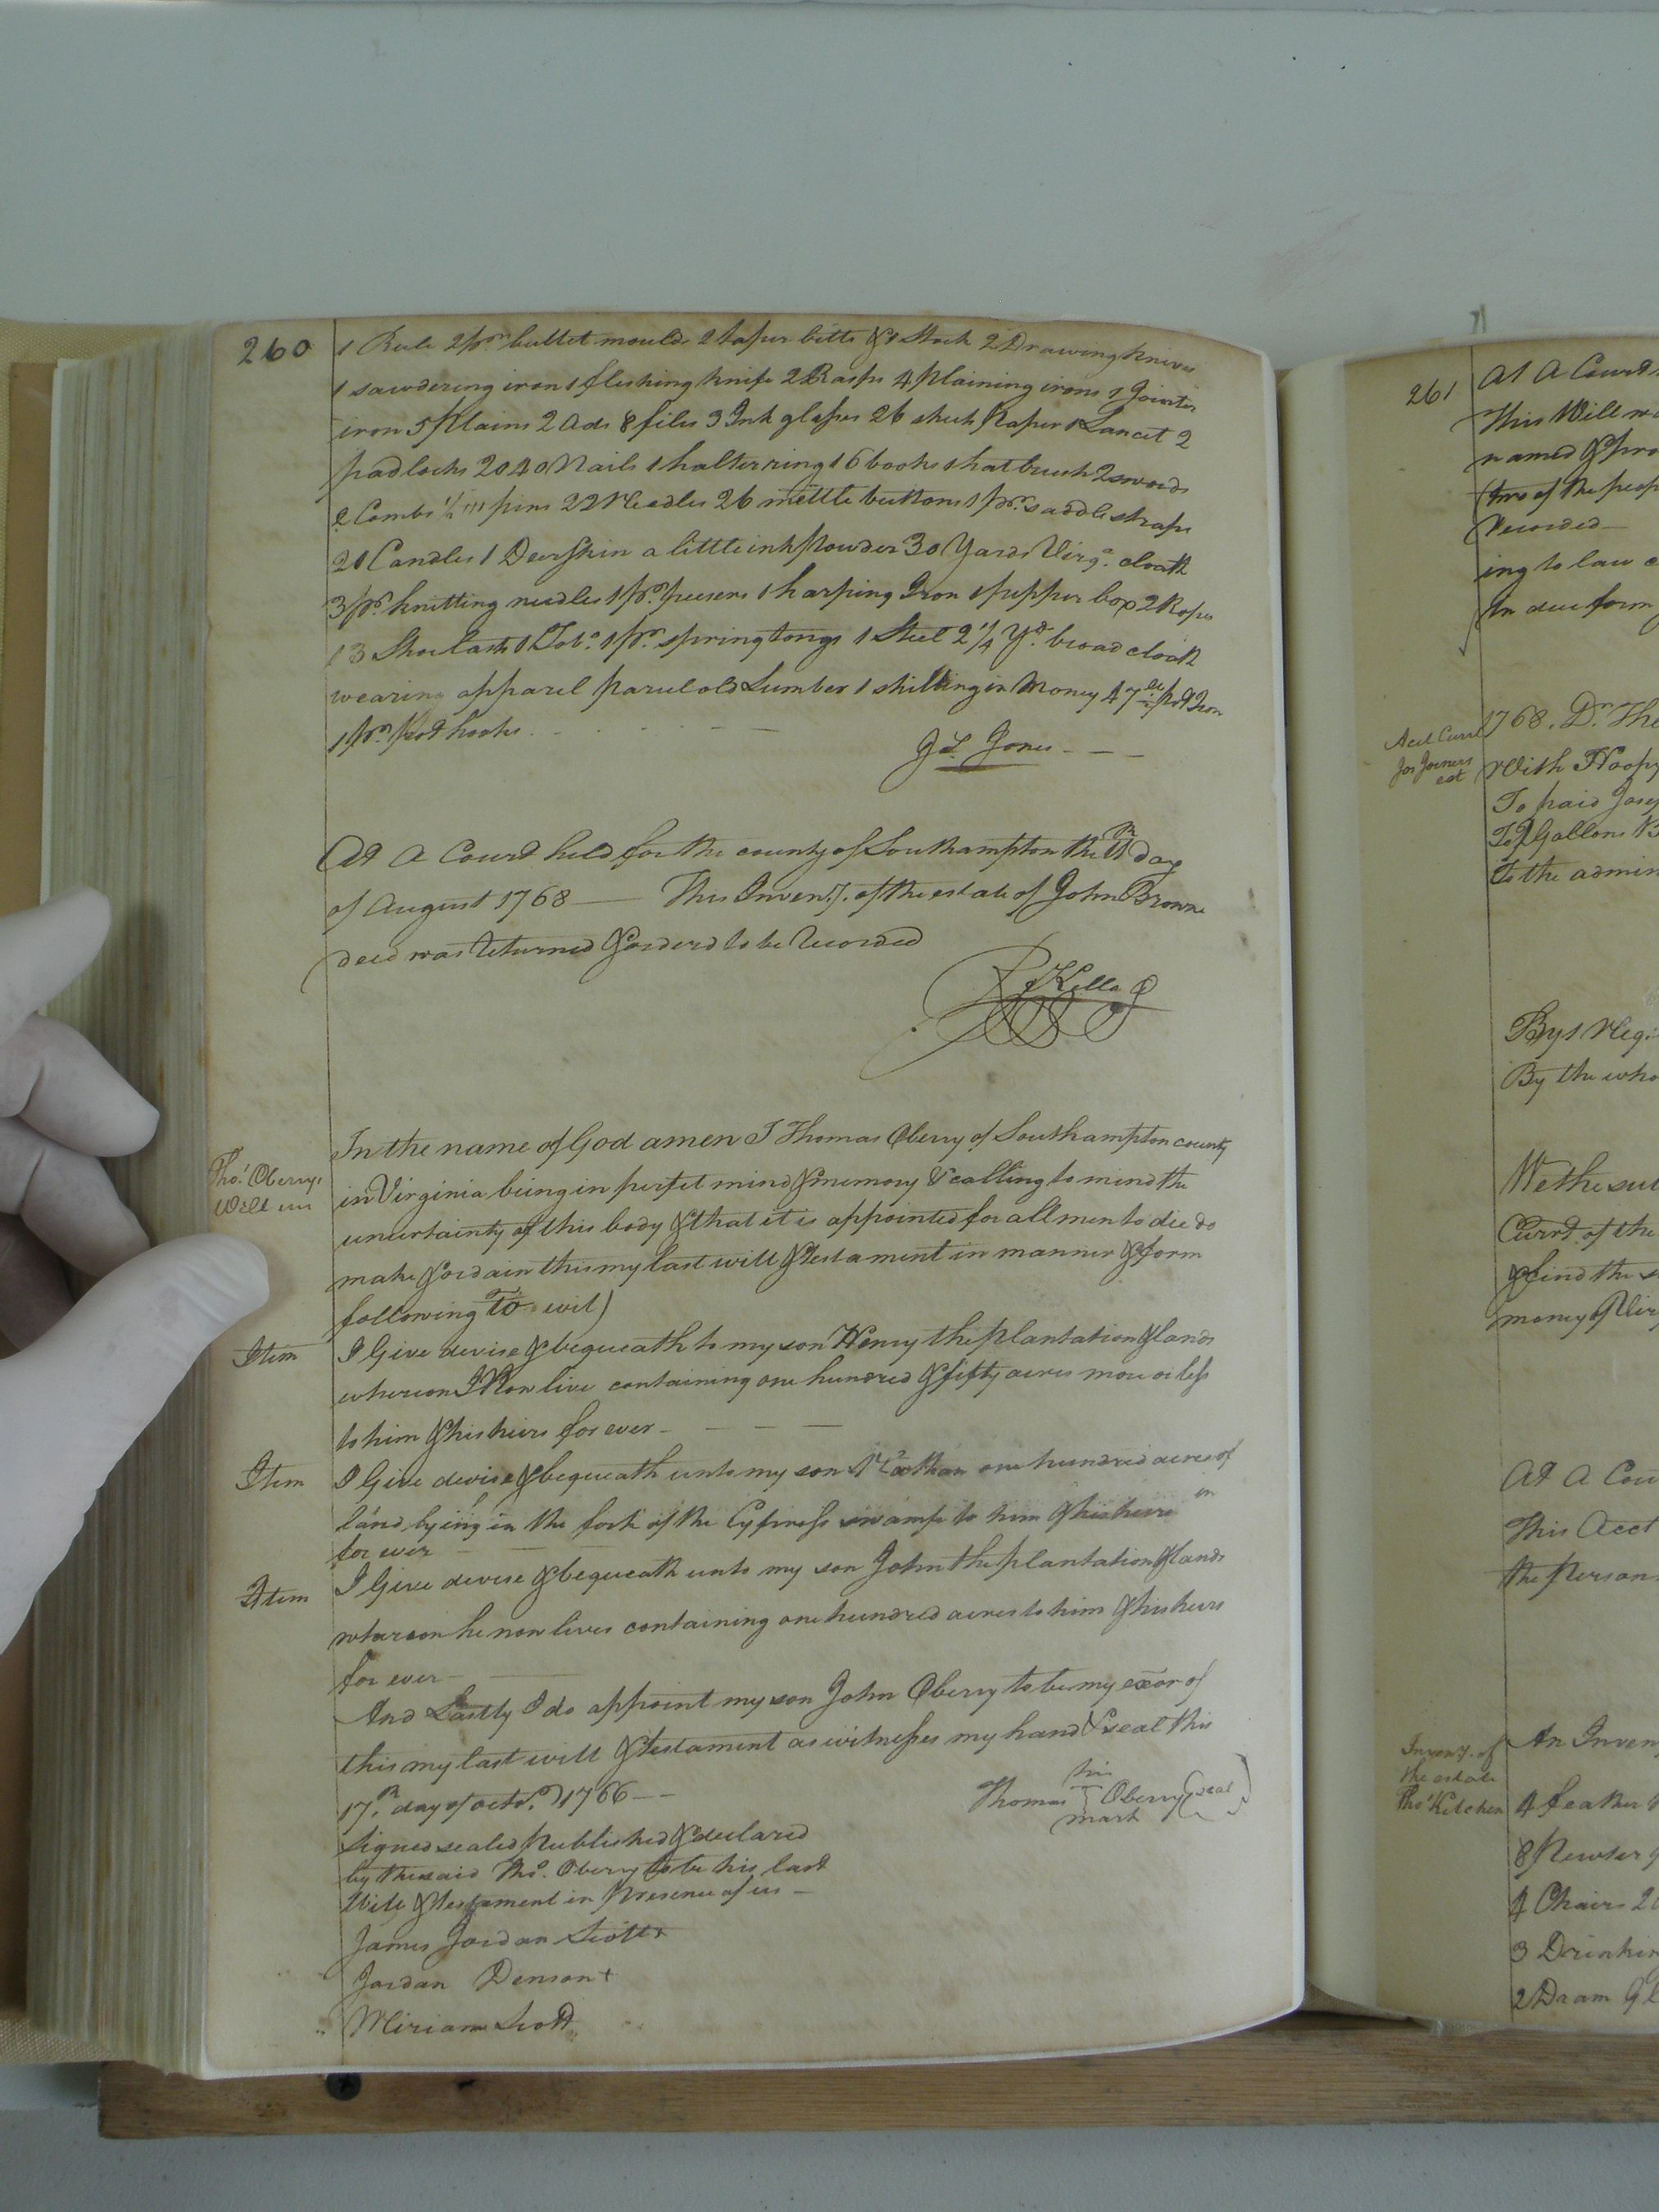 260
1 Rule 2 pr. bullet moulds 2 taper bitts & 1 Stock 2 Drawing knives
1 sawdering iron 1 fleshing knife 2 Rasps 4 plaining irons 1 Jointer
iron 5 Plains 2 Ads 8 files 3 Ink glasses 26 sheets Paper 1 Lancet 2
padlocks 2040 Nails 1 halter ring 16 books 1 hat brush 2 swords
2 Combs 1/2 m pins 22 Needles 26 mettle buttons 1 pr. saddle straps
20 Candles 1 Deer Skin a little ink powder 30 Yards Virga. cloath
3 pr. knitting needles 1 pr. 1 harping Iron 1 pepper box 2 Ropes
13 Shoe lasts 1 Tob. 1 pr. spring tongs 1 Steel 2 1/4 Yd. broad cloath
wearing apparel parcel old Lumber 1 shilling in Money 47 lb pot Iron
1 pr. Pot hooks
Jones
At A Court held for the county of Southampton the 11th day
of August 1768 — This Inventy. of the estate of John Browne
decd was Returned & orderd to be Recorded
Kello
Thos. Oberrys
Will
In the name of God amen I Thomas Oberry of Southampton county
in Virginia being in perfet mind & memory & calling to mind the
uncertainty of this body & that it is appointed for all men to die do
make & ordain this my last will & testament in manner & form
following To wit)
Item I Give devise & bequeath to my son Henry the plantation & lands
whereon I Now live containing one hundred & fifty acres more or less
to him & his heirs for ever —
Item I Give devise & bequeath unto my son one hundred acres of
land lying in the fork of the Cypress swamp to him & his heirs
for ever
Item I Give devise & bequeath unto my son John the plantation & lands
whareon he now lives containing one hundred acres to him & his heirs
for ever
And Lastly I do appoint my son John Oberry to be my exor of
this my last will & testament as witnesses my hand & seal this
17th. day of octor. 1766 —
his
Thomas T Oberry (seal)
mark
Signed sealed Published & declared
by the said Tho. Oberry to be his last
Will & Testament in Presence of us —
James Jordan Scott +
Jordan Denson +
Miriam Scott
261
At A Court
This Will
named & pro
two of the peop
Recorded —
ing to law
In due form
Acct Curr
Jos Joiners
est
1768. Dr. The
With
To paid Jos
To 9 Gallons
To the admin
By 1 Neg
By the who
We the su
Currt. of the
& find the
money of Vir
At A Cou
This Acct
the Person
Inventy. of
the estate
Thos. Kitchen
An Inven
4 feather
8 Pewter
4 Chairs
3 Drinkin
2 Dram Gl